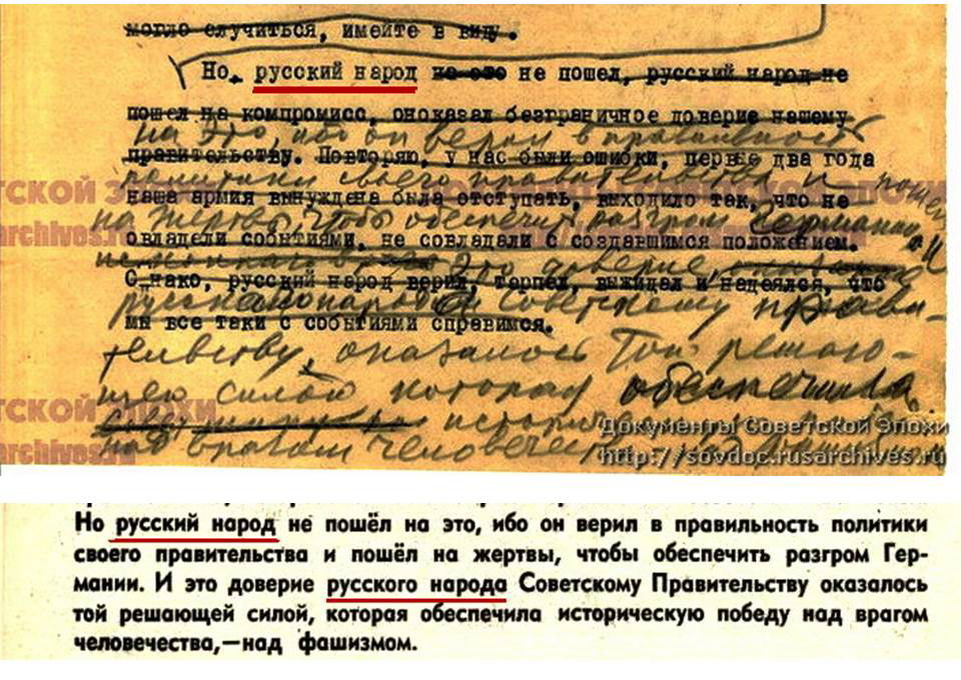 могло случиться, имейте в виду.
Но русский народ на это не пошел, русский народ не
пошел на компромисс, оноказал безграничное доверие нашему
на это, ибо он верил в правильность
правительству. Повторяю, у нас были ошибки, первые два года
политики своего правительства и пошел
наша армия вынуждена была отступать, выходило так, что не
на жертвы, чтобы обеспечить разгром Германии. И
овладели событиями, не совладали с создавшимся положением.
это доверие
Однако, русский народ верил, терпел, выжидал и надеялся, что
русского народа Советскому прави-
мы все таки с событиями справимся.
тельству оказалось той решаю-
щей силой, которая обеспечила
историческую победу
над врагом человечества, — над фашизмом
ТСКОЙ ЭПОХИ
archives.ru
ТСКОЙ ЭПОХИ
archives.ru
Документы Советской Эпохи
http://sovdoc.rusarchives.ru
Но русский народ не пошёл на это, ибо он верил в правильность политики
своего правительства и пошёл на жертвы, чтобы обеспечить разгром Гер-
мании. И это доверие русского народа Советскому Правительству оказалось
той решающей силой, которая обеспечила историческую победу над врагом
человечества,—над фашизмом.